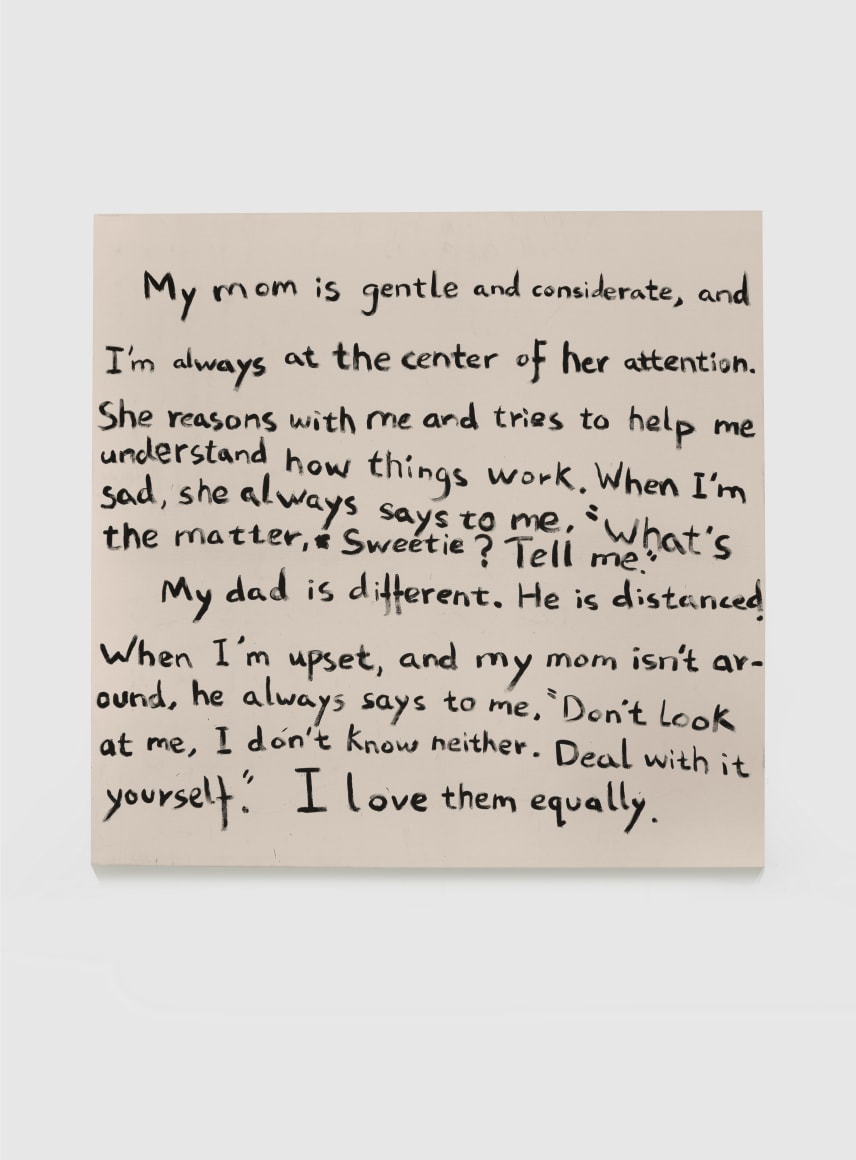 My mom is gentle and considerate, and
I'm always at the center of her attention.
She reasons with me and tries to help me
understand how things work. When I'm
sad, she always says to me, "What's
the matter, Sweetie? Tell me."
My dad is different. He is distanced.
When I'm upset, and my mom isn't ar-
ound, he always says to me, "Don't look
at me, I don't know neither. Deal with it
yourself." I love them equally.